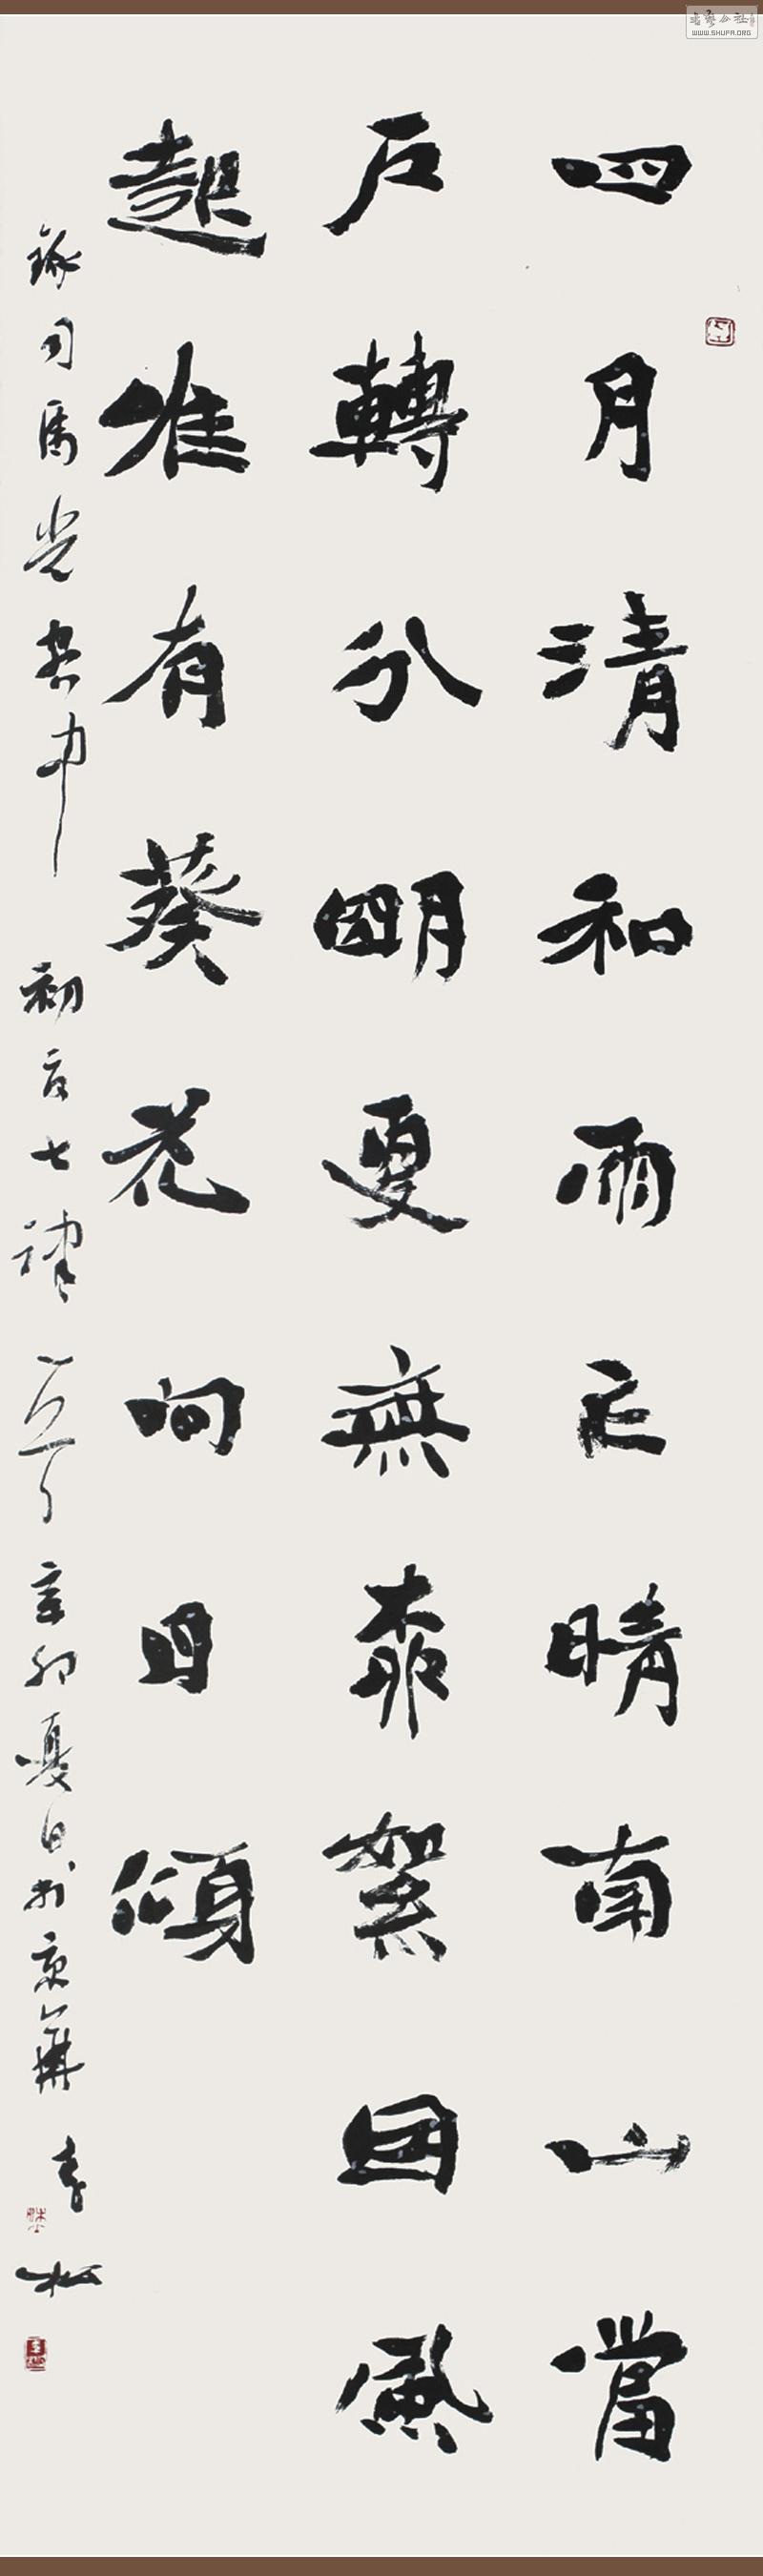 四月清和雨乍晴南山當
戶轉分明更無柳絮因風
起唯有葵花向日傾
錄司馬光客中初夏七律一首辛卯夏日於京華青松
WWW.SHUFA.ORG